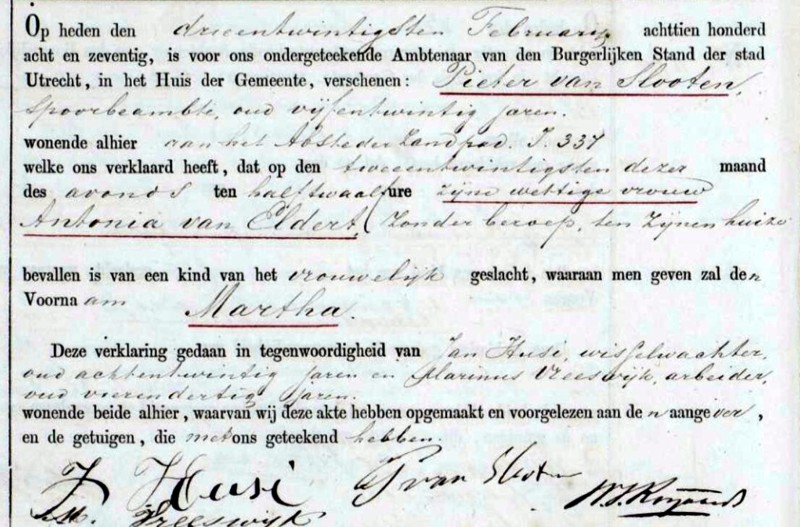 Op heden den drieentwintigsten Februarij achttien honderd
acht en zeventig, is voor ons ondergeteekende Ambtenaar van den Burgerlijken Stand der stad
Utrecht, in het Huis der Gemeente, verschenen: Pieter van Slooten,
spoorbeambte, oud vijfentwintig jaren.
wonende alhier aan het Abstederzandpad. J. 337
welke ons verklaard heeft, dat op den tweeentwintigsten dezer maand
des avonds ten halftwaalf ure zijne wettige vrouw
Antonia van Eldert, zonder beroep, ten zijnen huize
bevallen is van een kind van het vrouwelijk geslacht, waaraan men geven zal den
Voornaam Martha.
Deze verklaring gedaan in tegenwoordigheid van Jan Husi, wisselwachter,
oud achtentwintig jaren en Marinus Vreeswijk, arbeider,
oud vierendertig jaren.
wonende beide alhier, waarvan wij deze akte hebben opgemaakt en voorgelezen aan den aangever,
en de getuigen, die met ons geteekend hebben.
J Husi P van Slooten
M. Vreeswijk